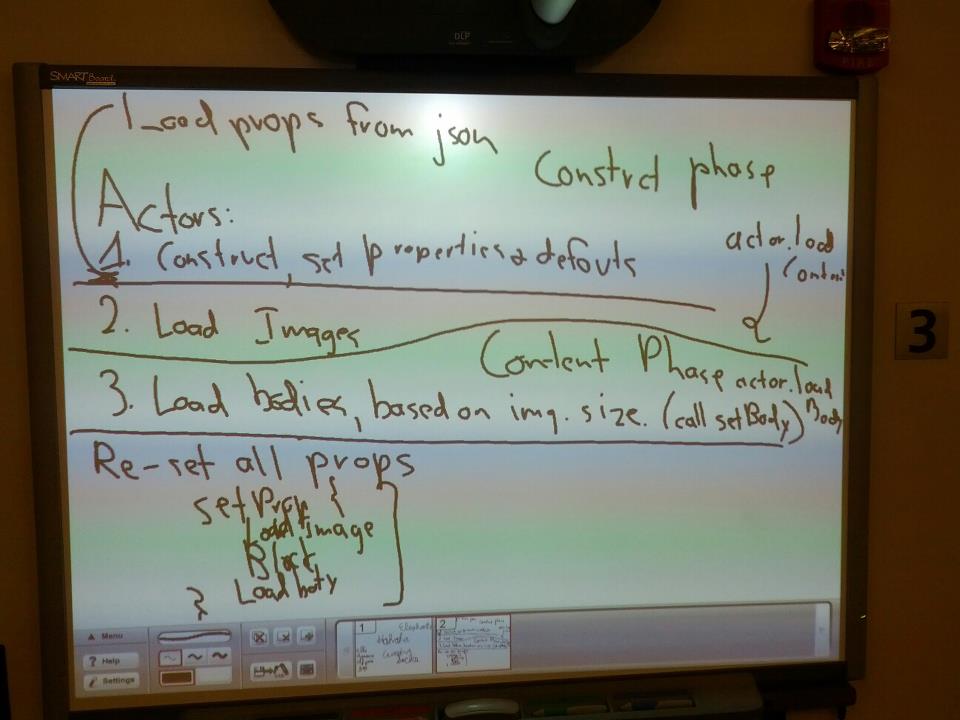 DLP
FIRE
SMART Board
Load props from json
Constrct phase
Actors:
1. Construct, set properties & defauts
actor.load
Content
2. Load Images
Content Phase
actor.load
Body
3. Load bodies, based on img. size. (call setBody)
Re-set all props
setProp {
Load Image
Load body
}
3
Menu
Help
Settings
1
2